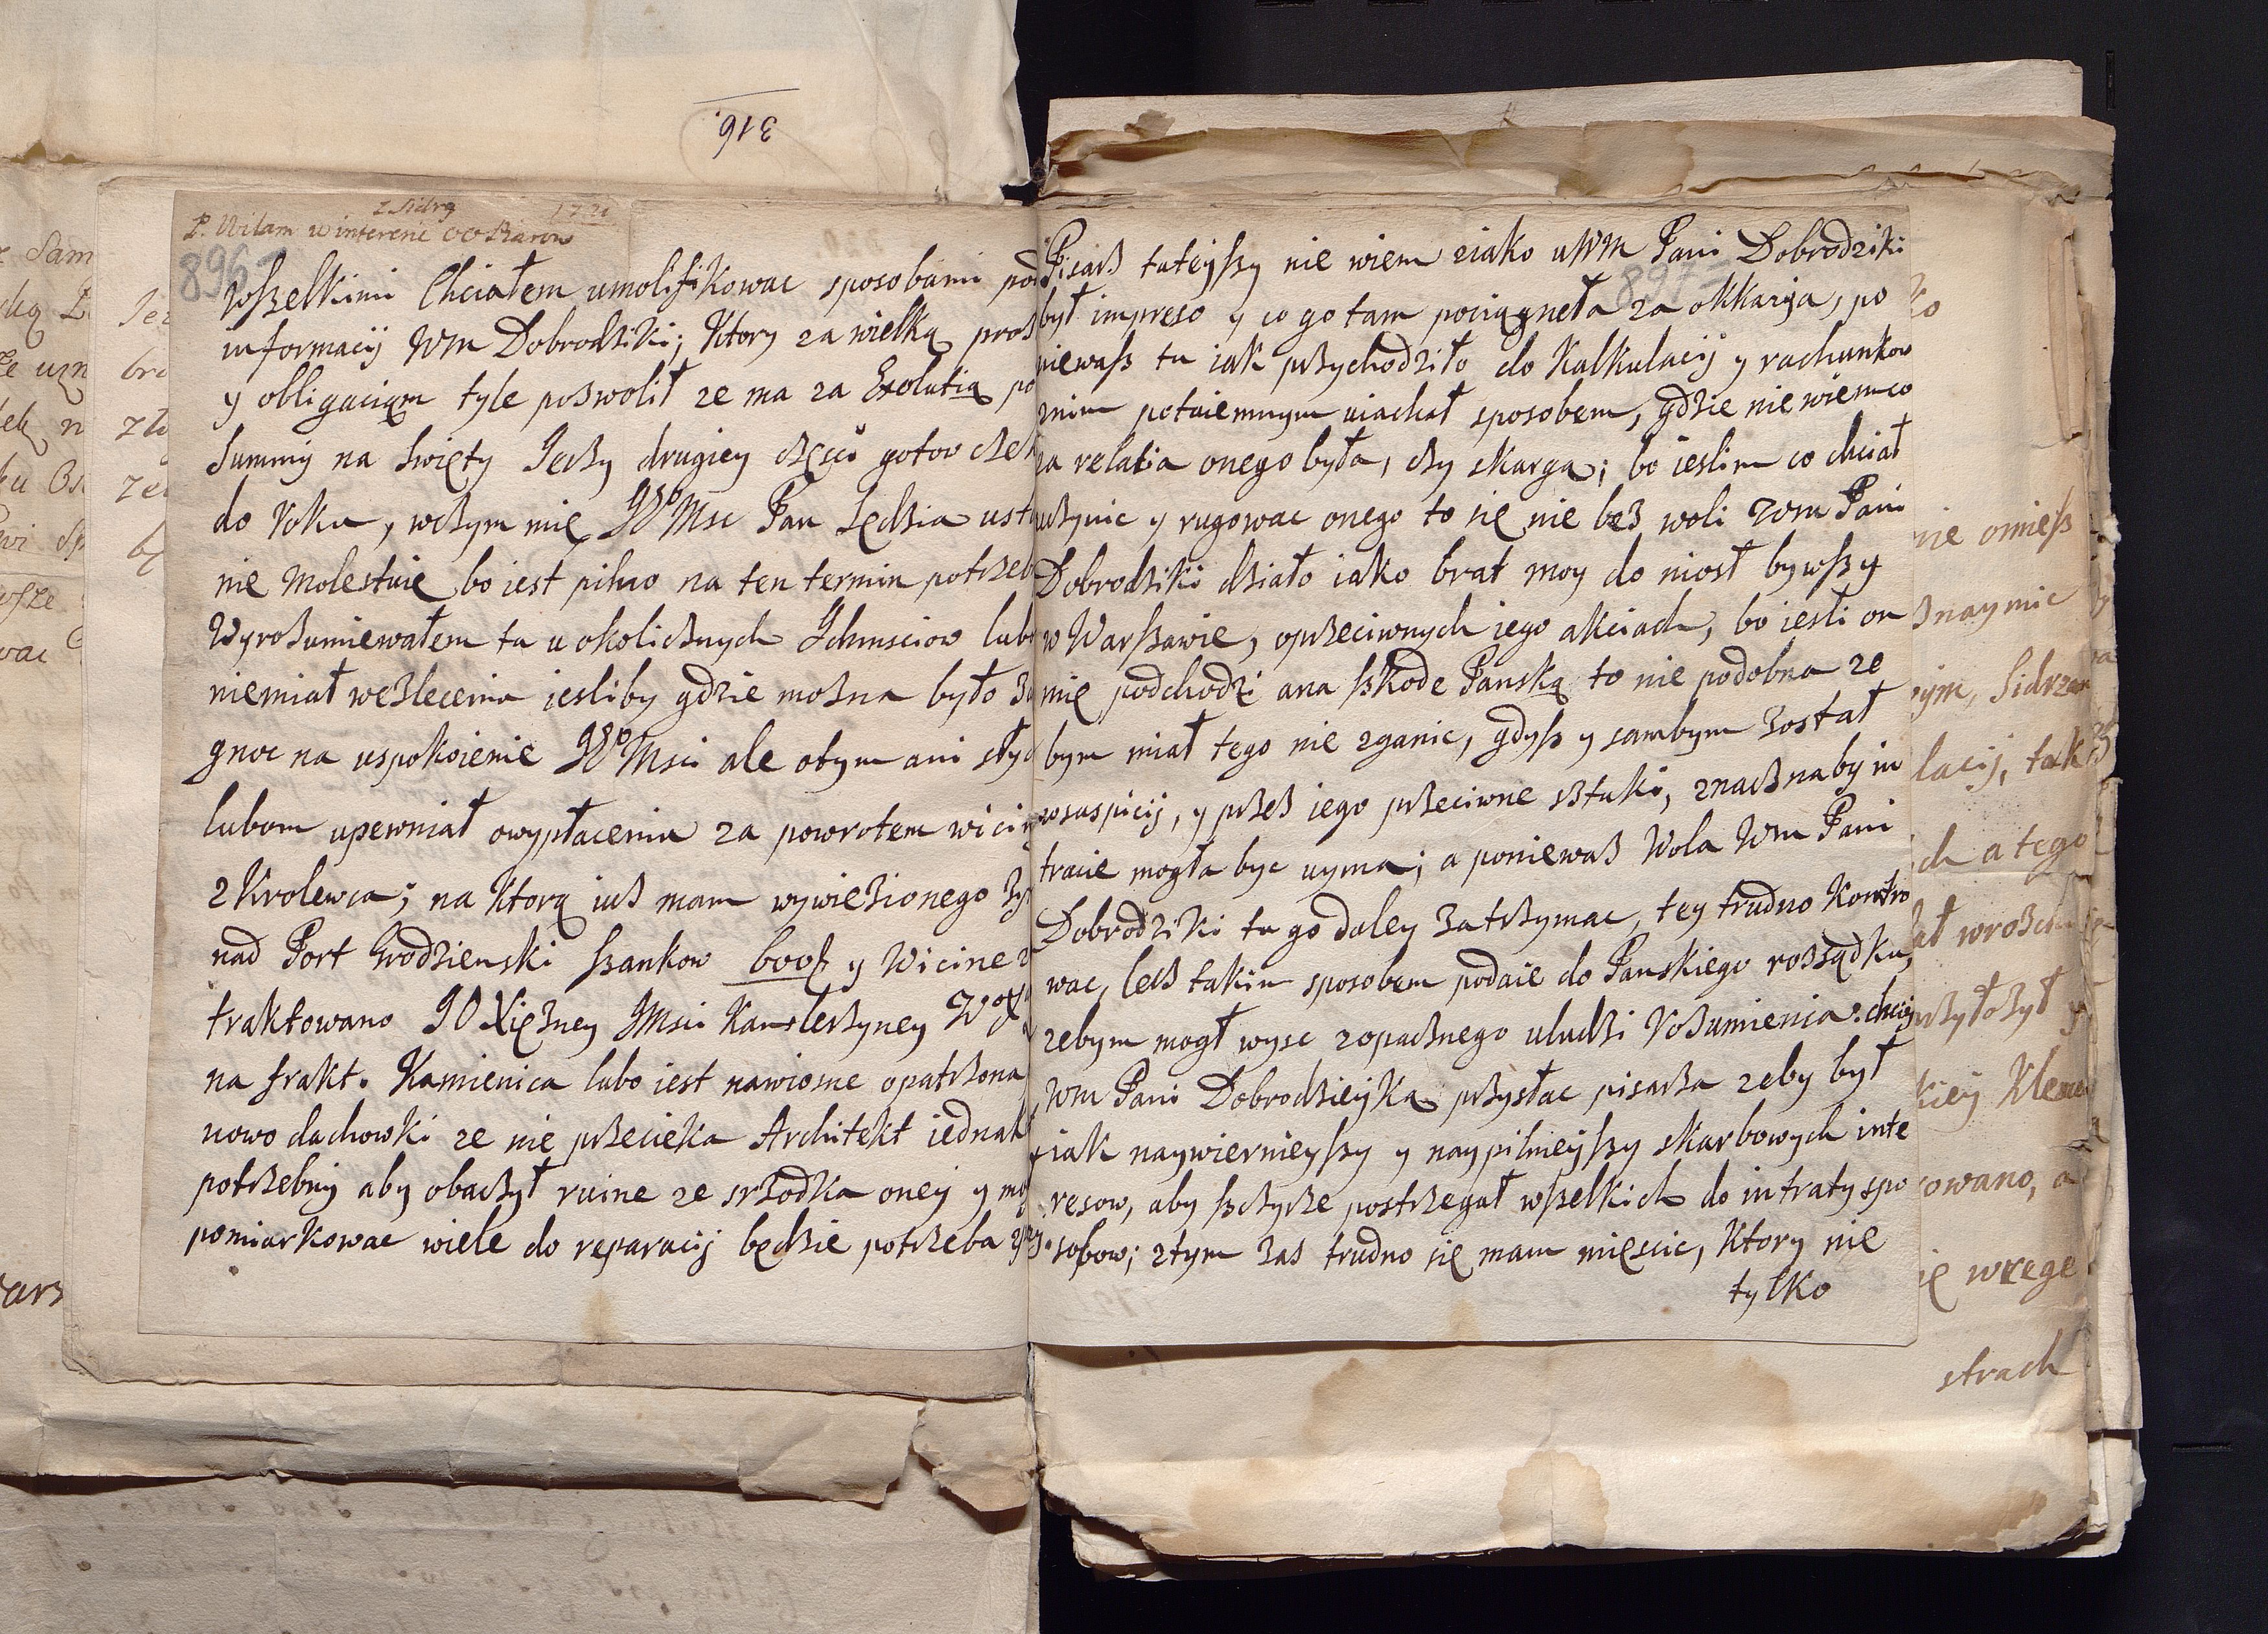 316.
z Sidrą 1721
P. Wilam w interesie OO Piarow
896
Wszelkimi Chciałem umolifikowac sposobami pod
informacij Wm Dobrodziki; Ktory za wielką proz
y obligaciąm tyle pozwolił ze ma za Exolutią po
Summy na Swięty Jerzy drugiey częsci gotow czek
do Roku, wczym mię JWo Msc Pan Sędzia ust
nie Molestuie bo iest pilno na ten termin potrzeb
Wyrozumiewałem tu u okolicznych Ichmsciow lub
niemiał wezlecenia iesliby gdzie mozna było za
gnoc na uspokoienie JWo Msci ale otym ani słyc
lubom upewniał owypłacenia za powrotem wicin
z Krolewca; na Ktorą iuz mam wywiezionego zy
nad Port Grodzienski szankow 600 ß y Wicine
traktowano JO Xięzney JMsci Kanclerzyney WX
na frakt. Kamienica lubo iest nawiosne opatrzona
nowo dachowki ze nie przecieka Architekt iednak
potrzebny aby obaczył ruine ze srzodka oney y mo
pomiarkowac wiele do reparacij będzie potrzeba
897
Pisarz tuteyszy nie wiem ziako u WM Pani Dobrodziki
był impreso y co go tam pociągneła za okkazya, po
niewasz tu iak przychodziło do Kalkulacij y rachunkow
znim potaiemnym uiachał sposobem, gdzie niewiem co
za relatia onego była, czy skarga; bo ieslim co chciał
uczynic y rugowac onego to się nie bez woli Wm Pani
Dobrodziki działo iako brat moy do niosł bywszy
w Warszawie, oprzeciwnych iego akciach, bo iesli on
mię podchodzi ana szkode Panską to nie podobna ze
bym miał tego nie zganic, gdysz y sambym został
wsuspicij, y przez iego przeciwne sztuki, znaczna by in
tracie mogła byc uyma; a poniewaz Wola Wm Pani
Dobrodziki tu go daley zatrzymac, tey trudno Kontro
wac, lecz takim sposobem podaie do Panskiego rozsądku,
zebym mogł wysc zopacznego uludzi Rozumienia: chciey
Wm Pani Dobrodzieyka przysłac pisarza zeby był
iak naywiernieyszy y naypilnieyszy skarbowych inte
resow, aby szczyrze postrzegał wszelkich do intraty spo
sobow; ztym zas trudno się mam miescic, Ktory nie
tylko
nie omiesz
znaymic
Sidrzan
lacij, tak
a tego
przyłozył y
strach